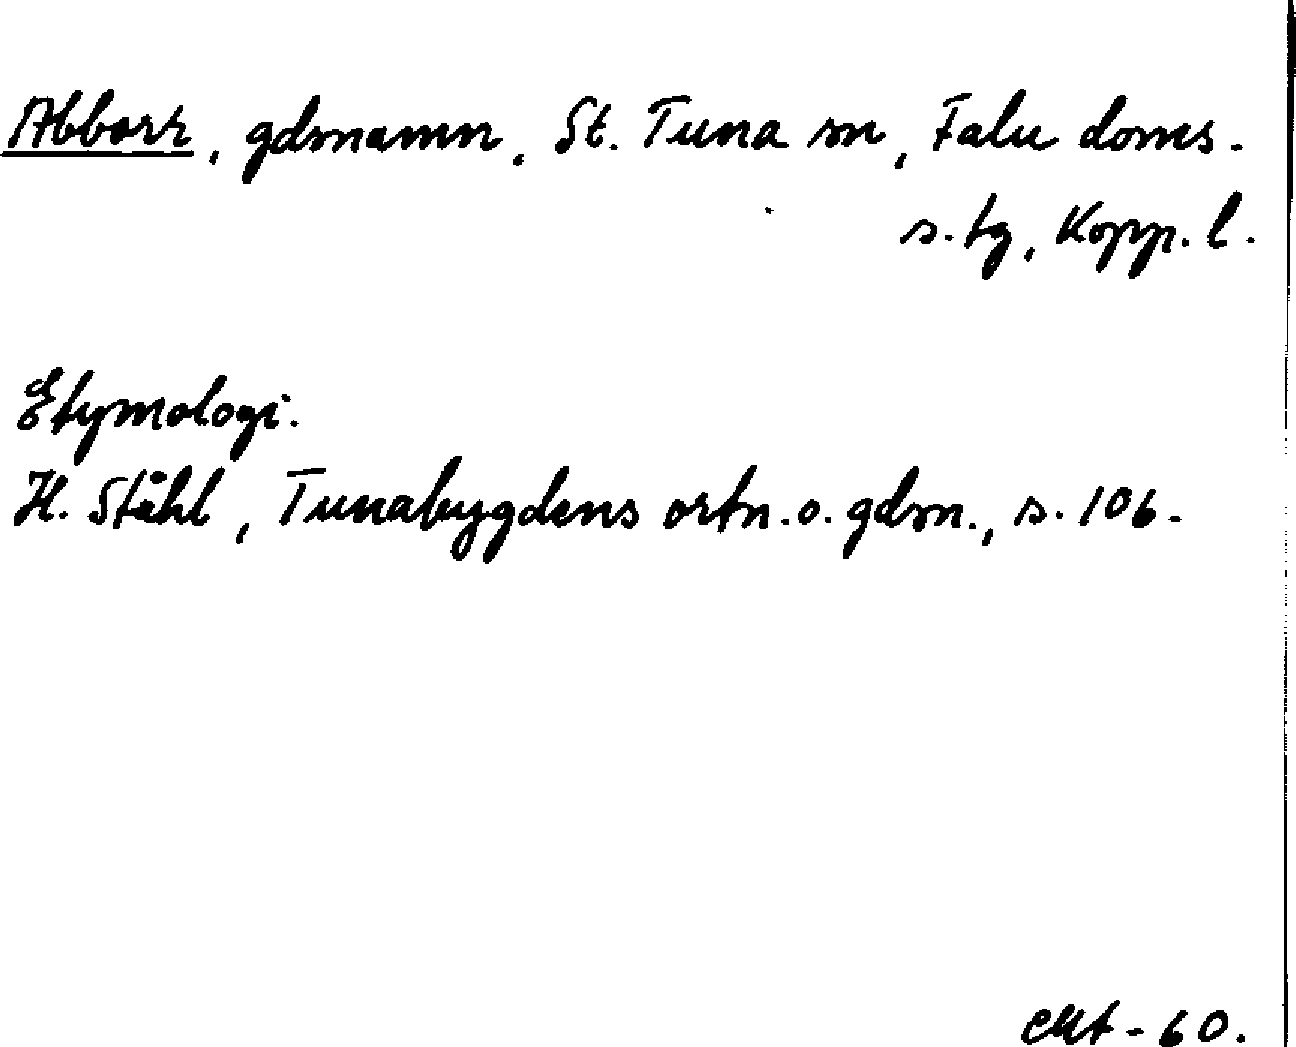 Abborr, gdsnamn, St. Tuna sn, Falu doms.
s. tg, Kopp. l.
Etymologi.
H. Ståhl, Tunabygdens ortn. o. gdsn., s. 106.
-60.